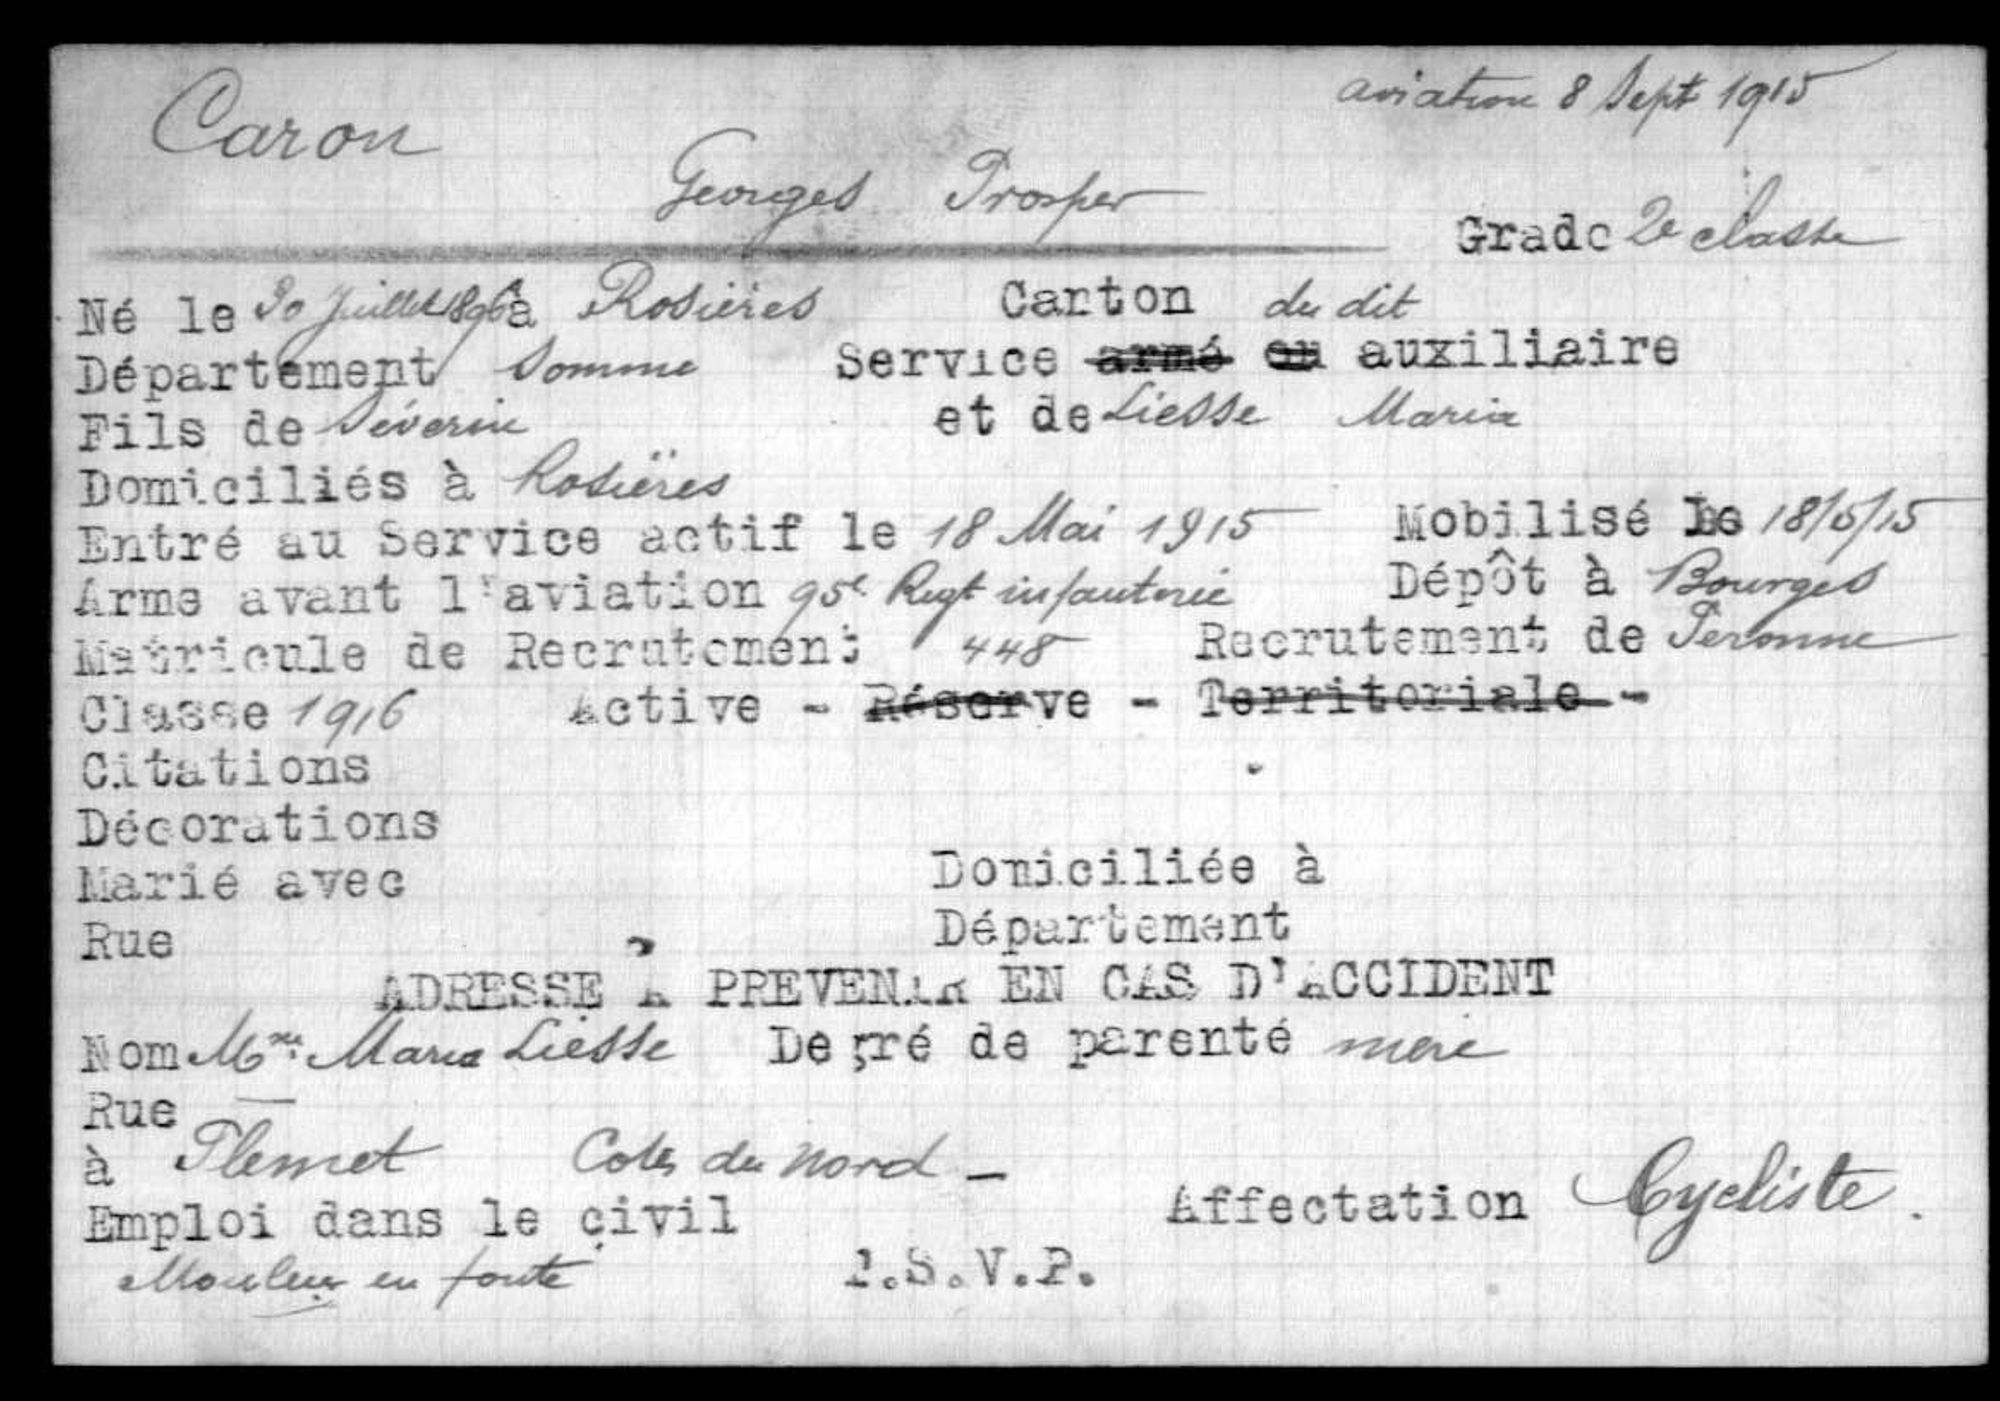 aviation 8 Sept 1915
Caron
Georges Prosper
Grade 2e classe
Né le 30 Juillet 1896 à Rosières Carton du dit
Département Somme Service armé ou auxiliaire
Fils de Séverin et de Liesse Maria
Domiciliés à Rosières
Entré au Service actif le 18 Mai 1915 Mobilisé le 18/5/15
Arme avant l'aviation 95e Regt infanterie Dépôt à Bourges
Matricule de Recrutement 448 Recrutement de Peronne
Classe 1916 Active - Réserve - Territoriale -
Citations
Décorations
Marié avec Domiciliée à
Rue Département
ADRESSE A PREVENIR EN CAS D'ACCIDENT
Nom Mme Maria Liesse Degré de parenté mère
Rue —
à Plemet Cotes du Nord —
Emploi dans le civil Affectation Cycliste.
Mouleur en fonte P.S.V.P.